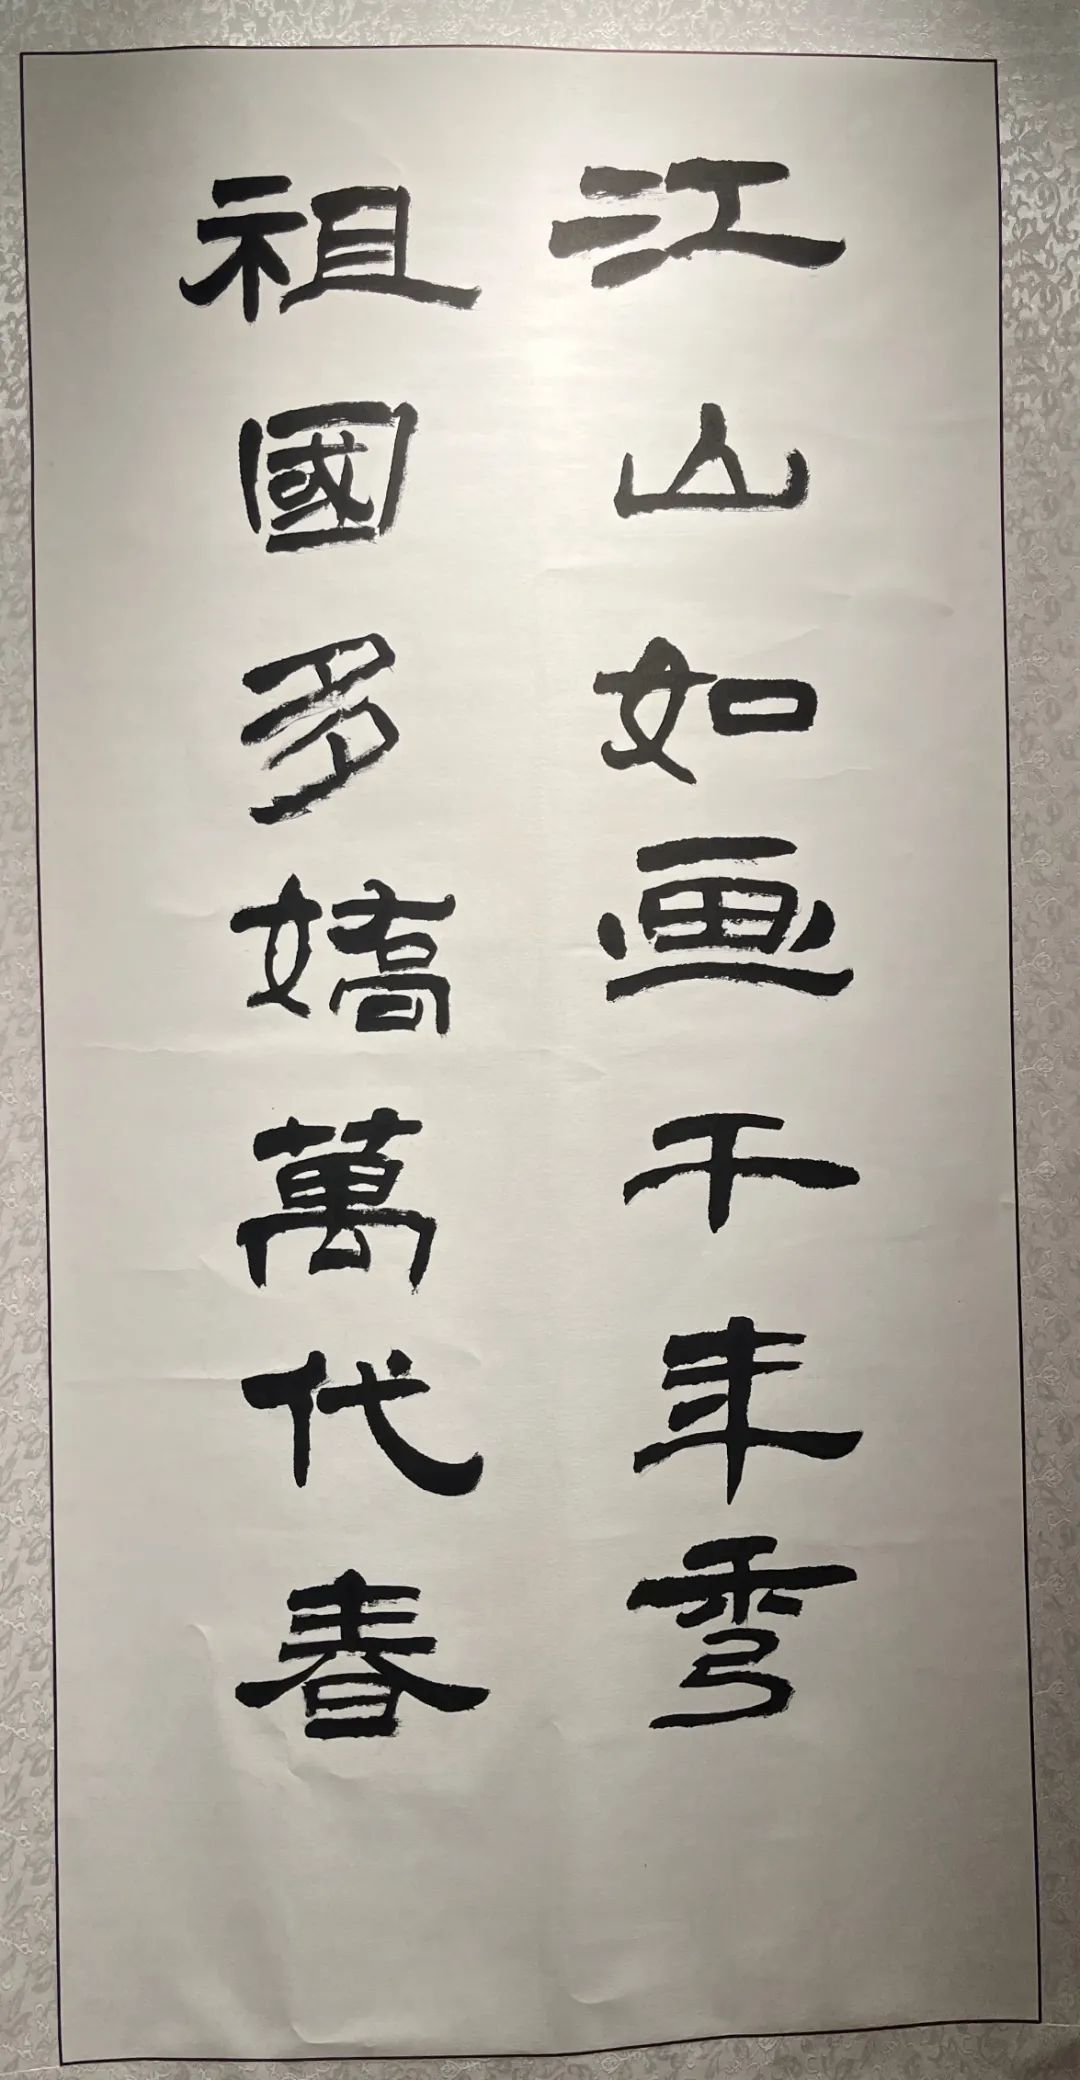 江山如画千年秀
祖國多嬌萬代春